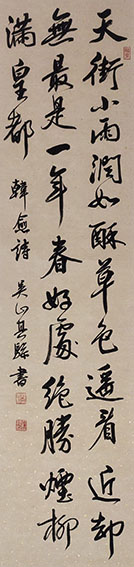 天街小雨潤如酥草色遥看近却
無最是一年春好處絕勝煙柳
滿皇都 韓愈詩 書